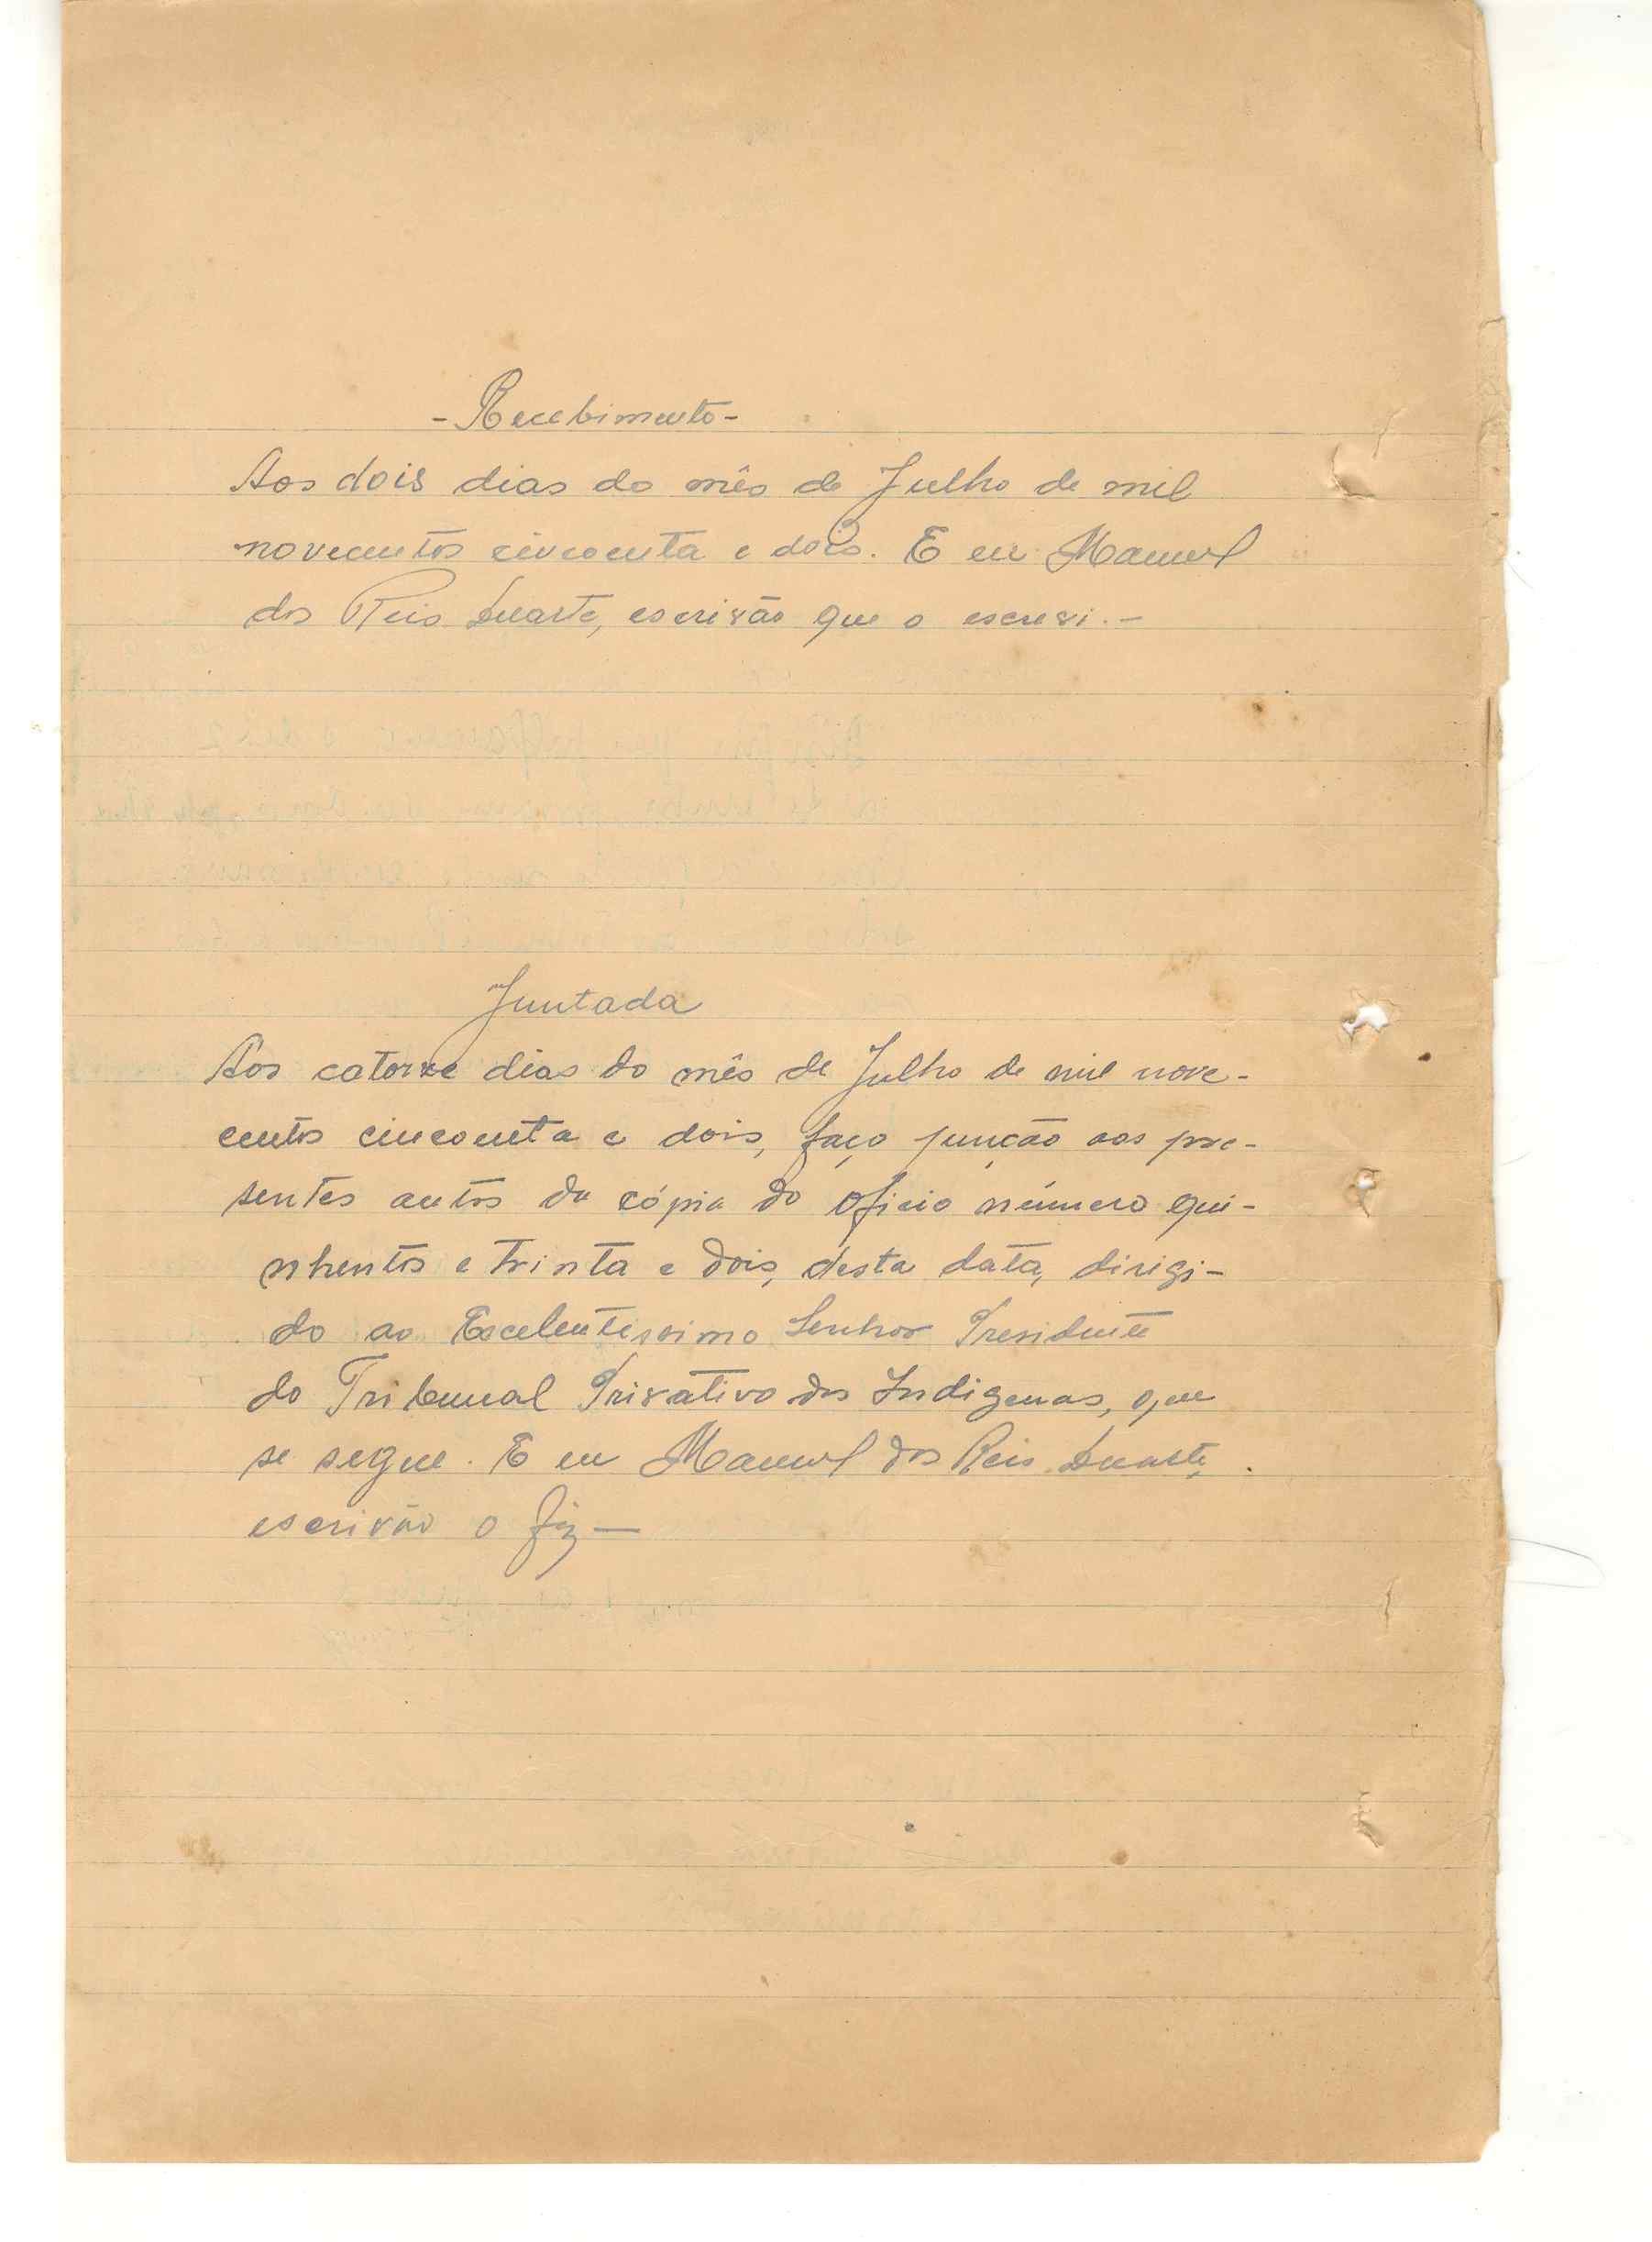 - Recebimento -
Aos dois dias do mês de Julho de mil
novecentos cincoenta e dois. E eu Manuel
dos Reis Duarte, escrivão que o escrevi. -
Juntada
Aos catorze dias do mês de Julho de mil nove-
centos cincoenta e dois, faço junção aos pre-
sentes autos da cópia do oficio número qui-
nhentos e trinta e dois, desta data, dirigi-
do ao Excelentissimo Senhor Presidente
do Tribunal Privativo dos Indigenas, que
se segue. E eu Manuel dos Reis Duarte,
escrivão o fiz —